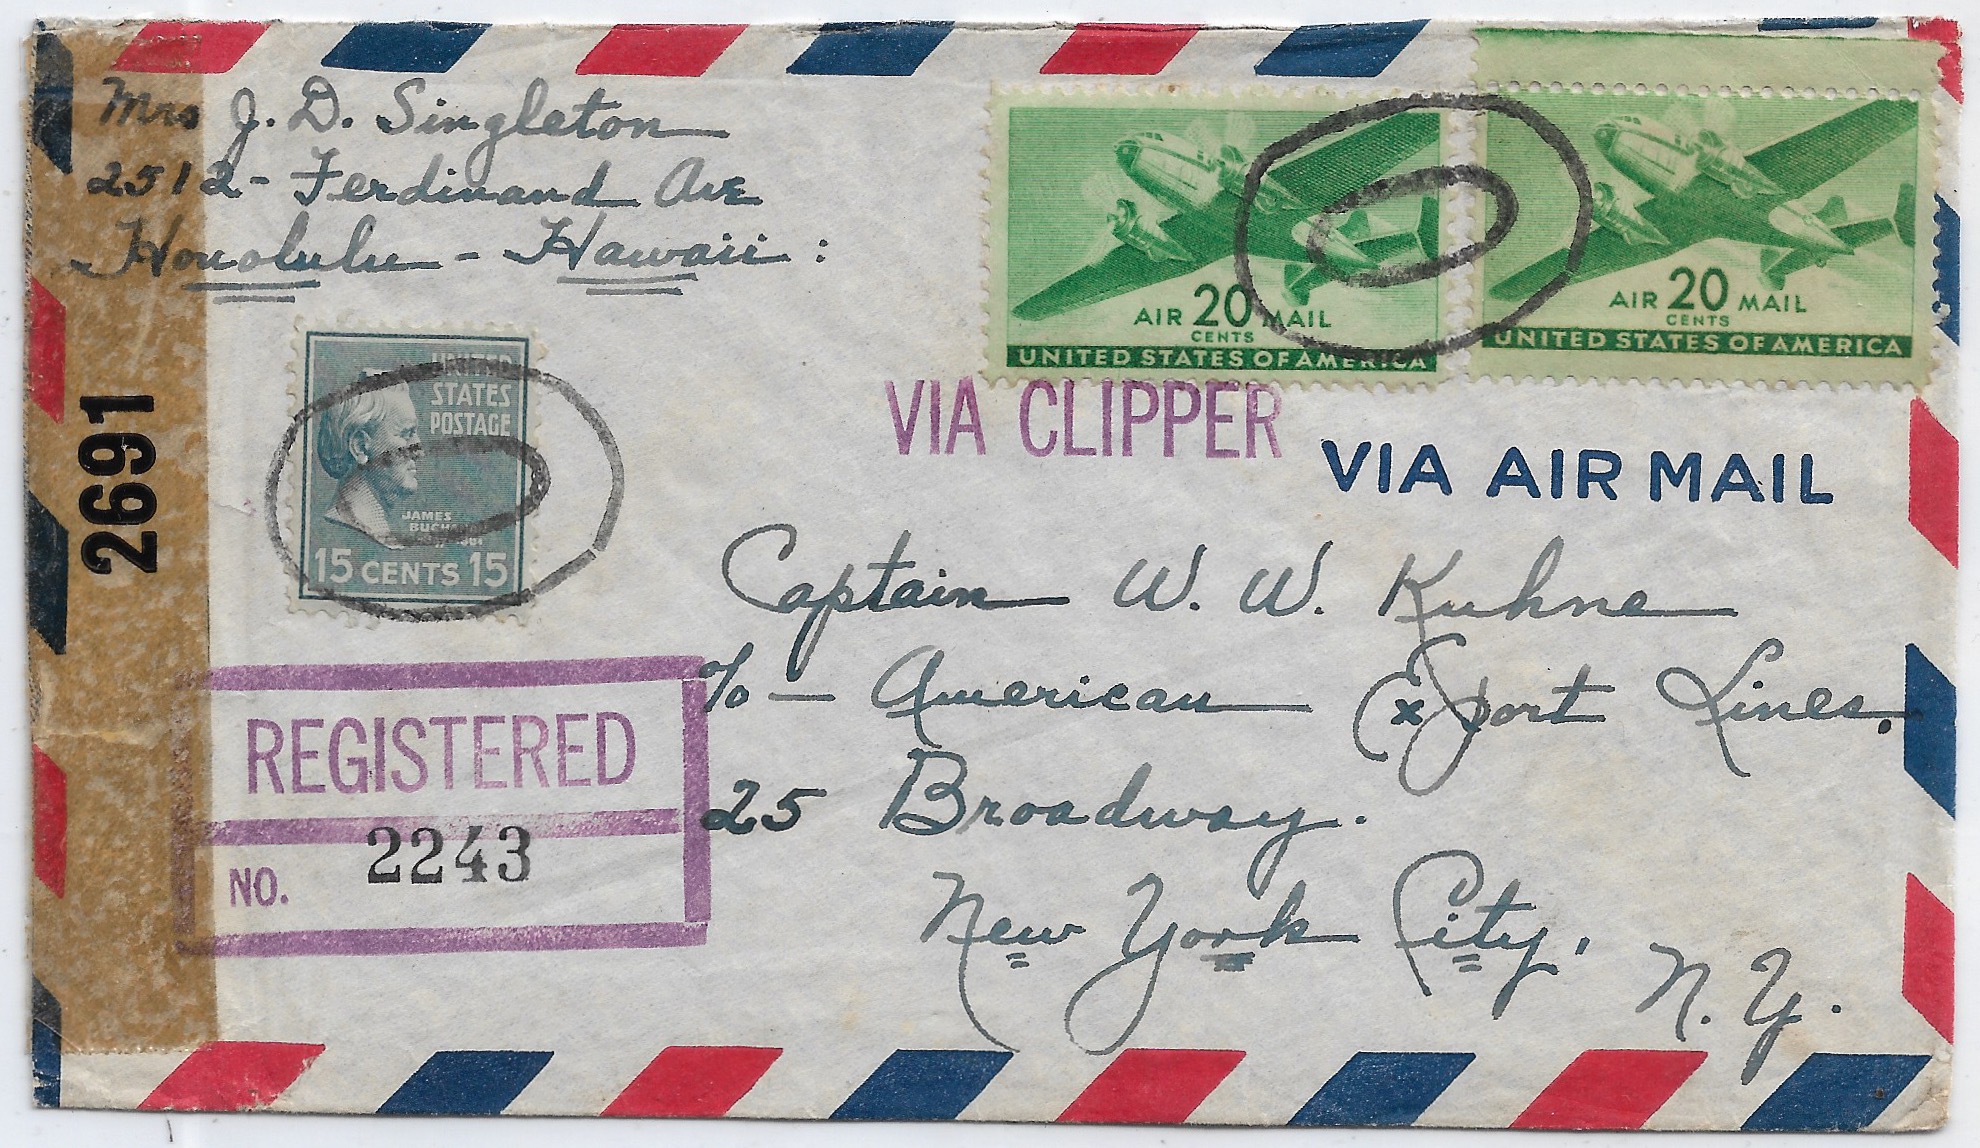 Mrs J. D. Singleton
2512 - Ferdinand Ave
Honolulu - Hawaii :
AIR 20 MAIL
CENTS
UNITED STATES OF AMERICA
AIR 20 MAIL
CENTS
UNITED STATES OF AMERICA
UNITED
STATES
POSTAGE
JAMES
15 CENTS 15
2691
VIA CLIPPER
VIA AIR MAIL
Captain W. W. Kuhne
c/o — American Export Lines.
25 Broadway.
New York City, N.Y.
REGISTERED
NO. 2243